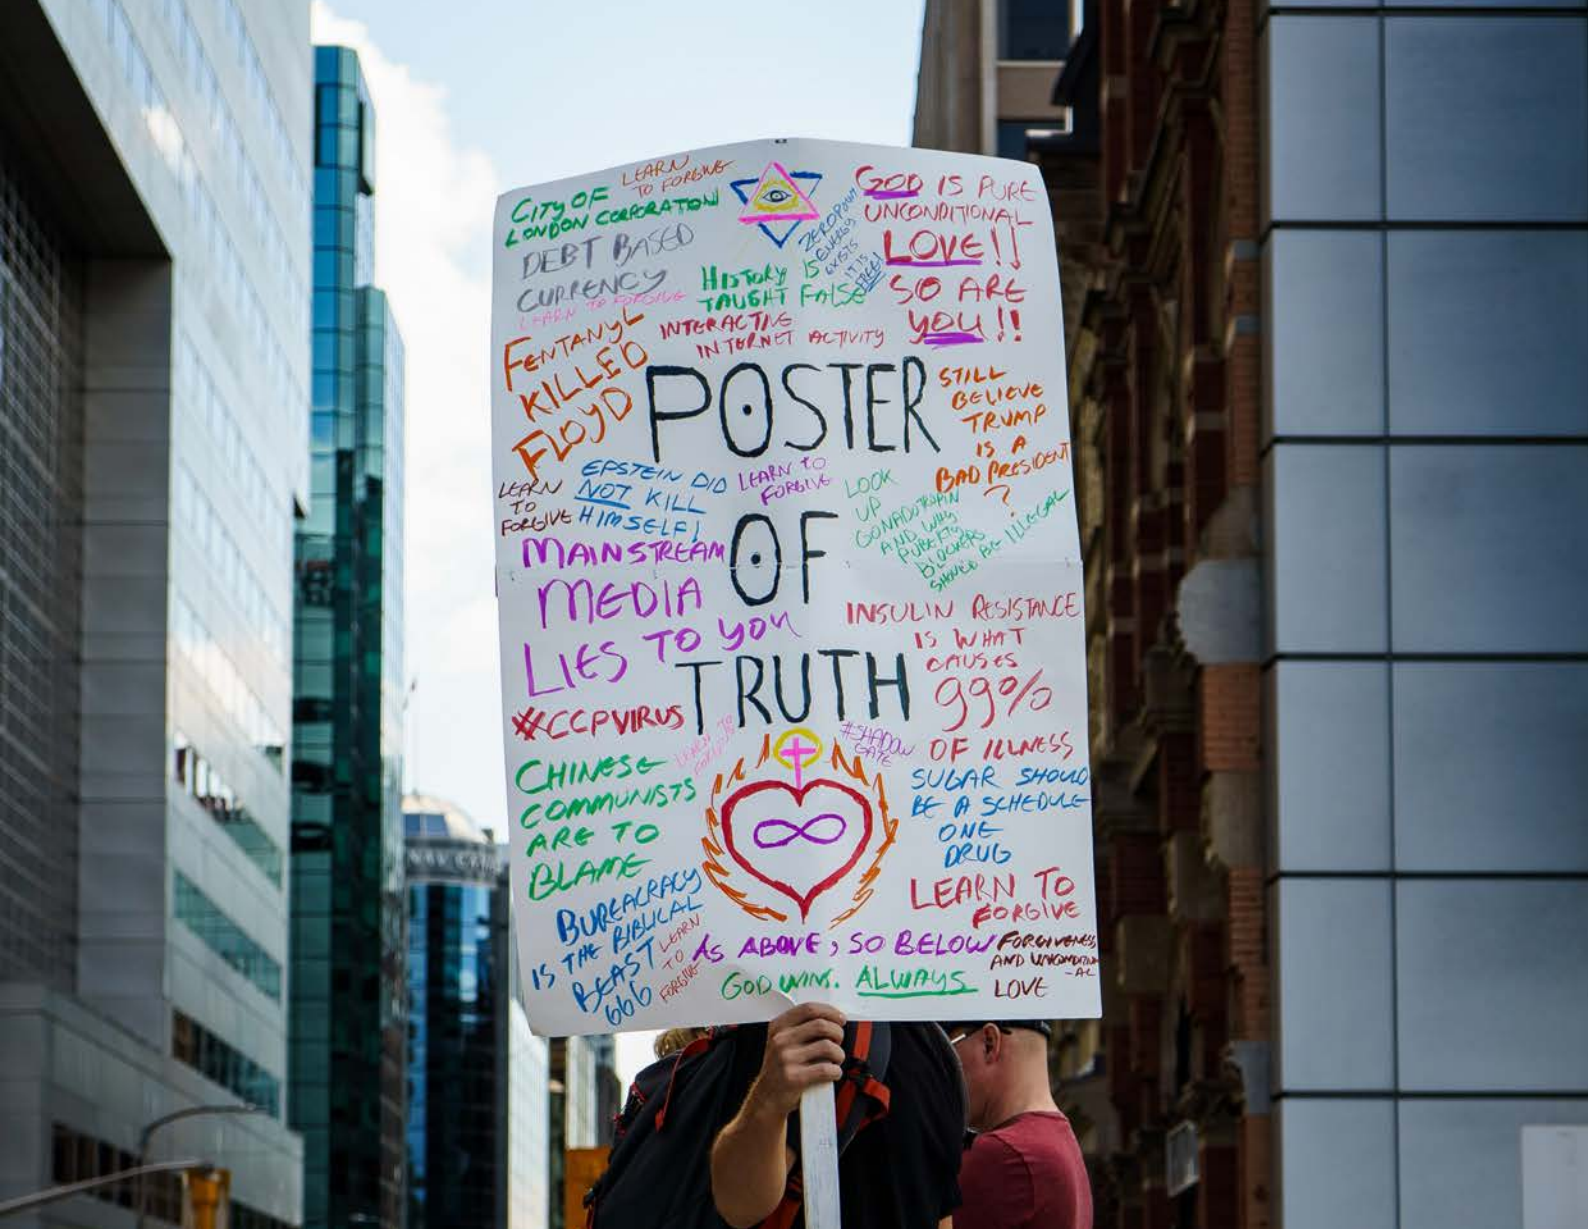 LEARN
TO FORGIVE
CITY OF
LONDON CORPORATION
DEBT BASED
CURRENCY
LEARN TO FORGIVE
HISTORY IS
TAUGHT FALSE
ZEROPOINT
ENERGY
EXISTS
IT IS
FREE!
GOD IS PURE
UNCONDITIONAL
LOVE!!
SO ARE
YOU!!
INTERACTIVE
INTERNET ACTIVITY
FENTANYL
KILLED
FLOYD
POSTER
STILL
BELIEVE
TRUMP
IS A
BAD PRESIDENT
?
LEARN
TO
FORGIVE
EPSTEIN DID
NOT KILL
HIMSELF!
LEARN TO
FORGIVE
LOOK
UP
GONADOTROPIN
AND WHY
PUBERTY
BLOCKERS
SHOULD BE ILLEGAL
OF
MAINSTREAM
MEDIA
LIES TO YOU
INSULIN RESISTANCE
IS WHAT
CAUSES
99%
OF ILLNESS
TRUTH
#CCPVIRUS
LEARN TO
FORGIVE
#SHADOW
GATE
CHINESE
COMMUNISTS
ARE TO
BLAME
SUGAR SHOULD
BE A SCHEDULE
ONE
DRUG
BUREACRACY
IS THE BIBLICAL
BEAST
666
LEARN
TO
FORGIVE
LEARN TO
FORGIVE
AS ABOVE, SO BELOW
GOD WINS. ALWAYS
FORGIVENESS
AND UNCONDITION
-AL
LOVE